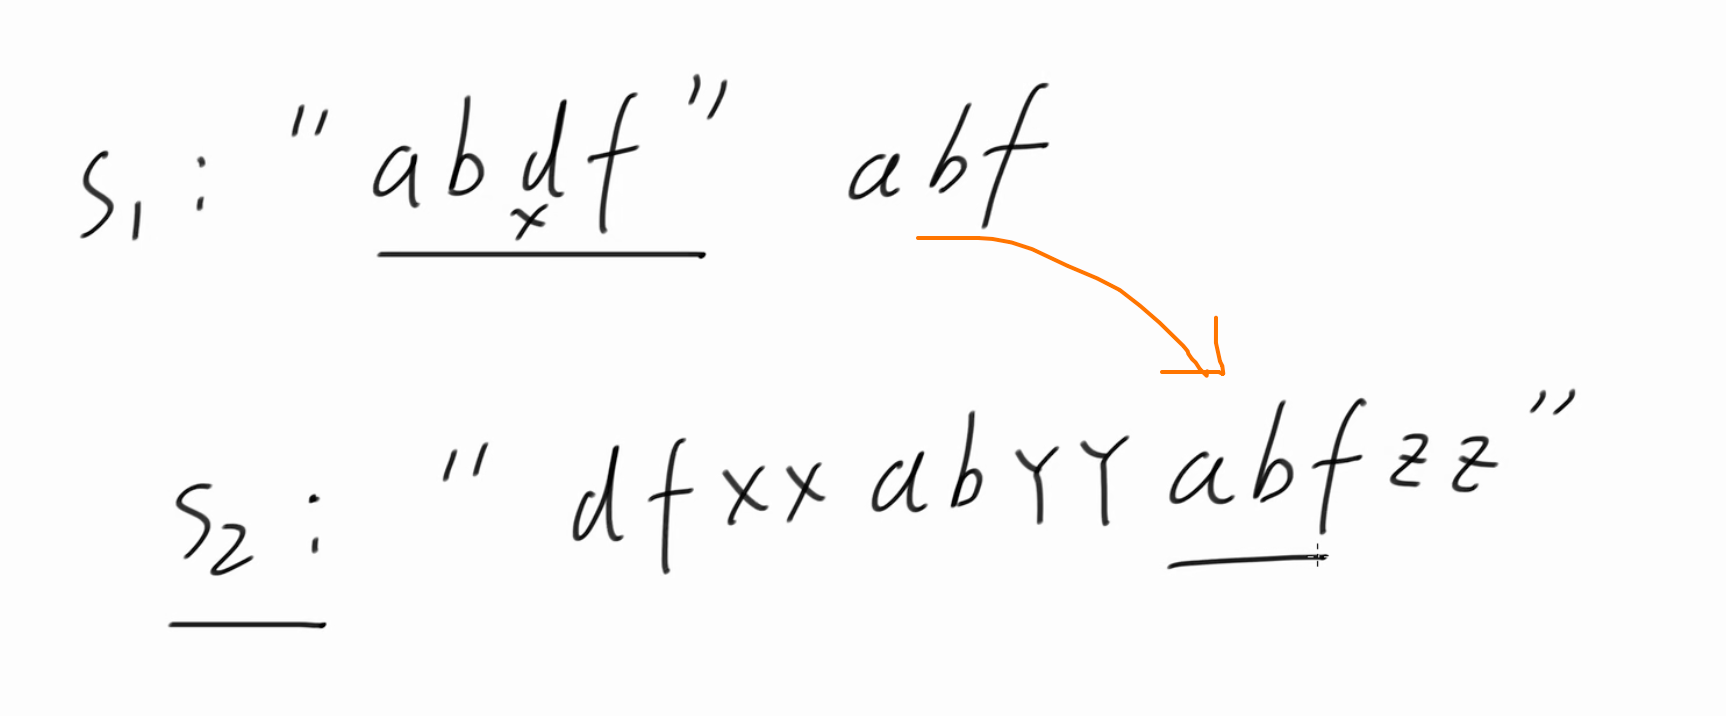 S₁ : "abdf" abf
x
S₂ : "dfxxabYYabfzz"